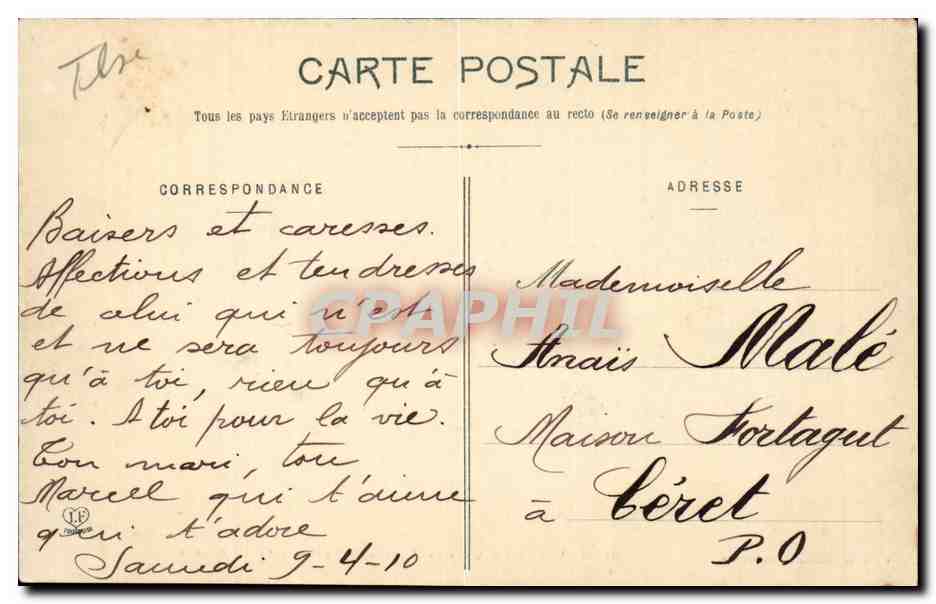 CARTE POSTALE
Tous les pays Etrangers n'acceptent pas la correspondance au recto (Se renseigner à la Poste)
CORRESPONDANCE
Baisers et caresses.
Affections et tendresses
de celui qui n'est
et ne sera toujours
qu'à toi, rien qu'à
toi. A toi pour la vie.
Ton mari, ton
Marcel qui t'aime
qui t'adore
Samedi 9-4-10
ADRESSE
Mademoiselle
Anaïs Malé
Maison Fortagut
à Céret
P.O
CPAPHIL